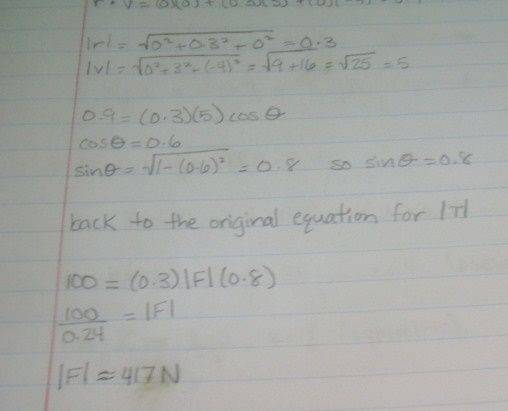 |r| = √0²+0.3²+0² = 0.3
|v| = √0²+3²+(-4)² = √9+16 = √25 = 5
0.9 = (0.3)(5) cos θ
cos θ = 0.6
sin θ = √1-(0.6)² = 0.8 so sin θ = 0.8
back to the original equation for |τ|
100 = (0.3)|F|(0.8)
100/0.24 = |F|
|F| ≈ 417 N